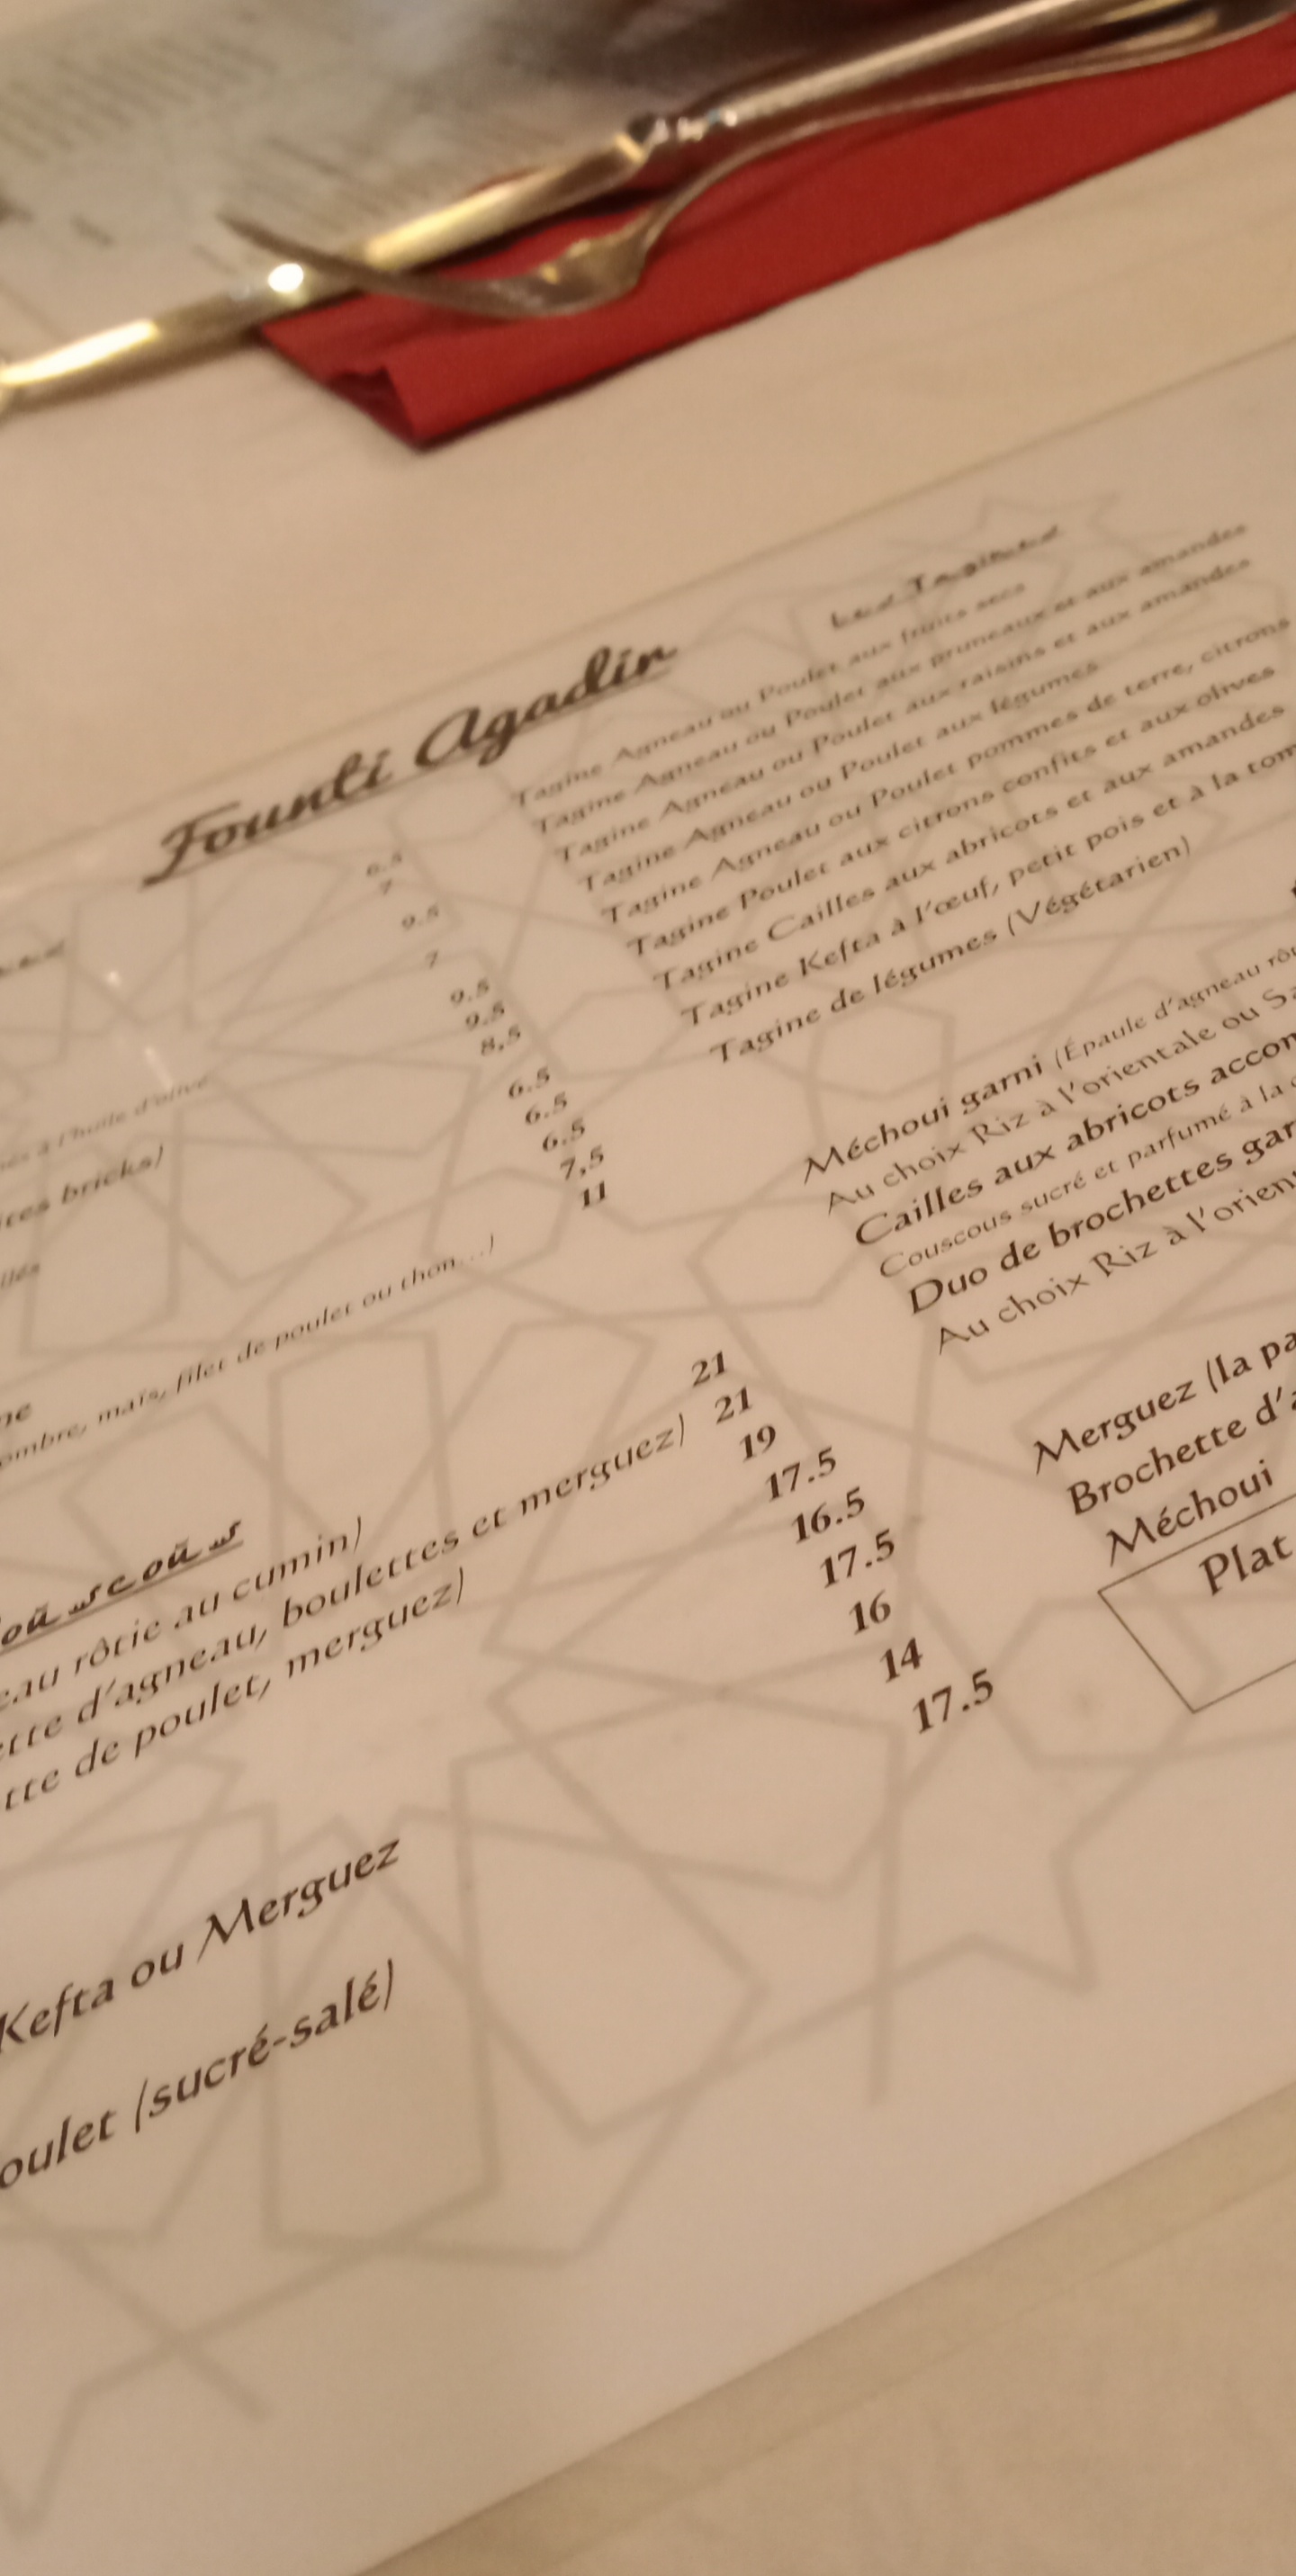 Founti Agadir
6.5
7
9.5
7
9.5
9.5
8,5
6.5
6.5
6.5
7,5
11
à l'huile d'olive
bricks)
ombre, maïs, filet de poulet ou thon...)
eau rôtie au cumin)
ette d'agneau, boulettes et merguez)
tte de poulet, merguez)
Kefta ou Merguez
oulet (sucré-salé)
21
21
19
17.5
16.5
17.5
16
14
17.5
Les Tagines
Tagine Agneau ou Poulet aux fruits secs
Tagine Agneau ou Poulet aux pruneaux et aux amandes
Tagine Agneau ou Poulet aux raisins et aux amandes
Tagine Agneau ou Poulet aux légumes
Tagine Agneau ou Poulet pommes de terre, citrons
Tagine Poulet aux citrons confits et aux olives
Tagine Cailles aux abricots et aux amandes
Tagine Kefta à l'œuf, petit pois et à la tom
Tagine de légumes (Végétarien)
Méchoui garni (Épaule d'agneau rô
Au choix Riz à l'orientale ou Sa
Cailles aux abricots accom
Couscous sucré et parfumé à la
Duo de brochettes gar
Au choix Riz à l'orien
Merguez (la pa
Brochette d'a
Méchoui
Plat